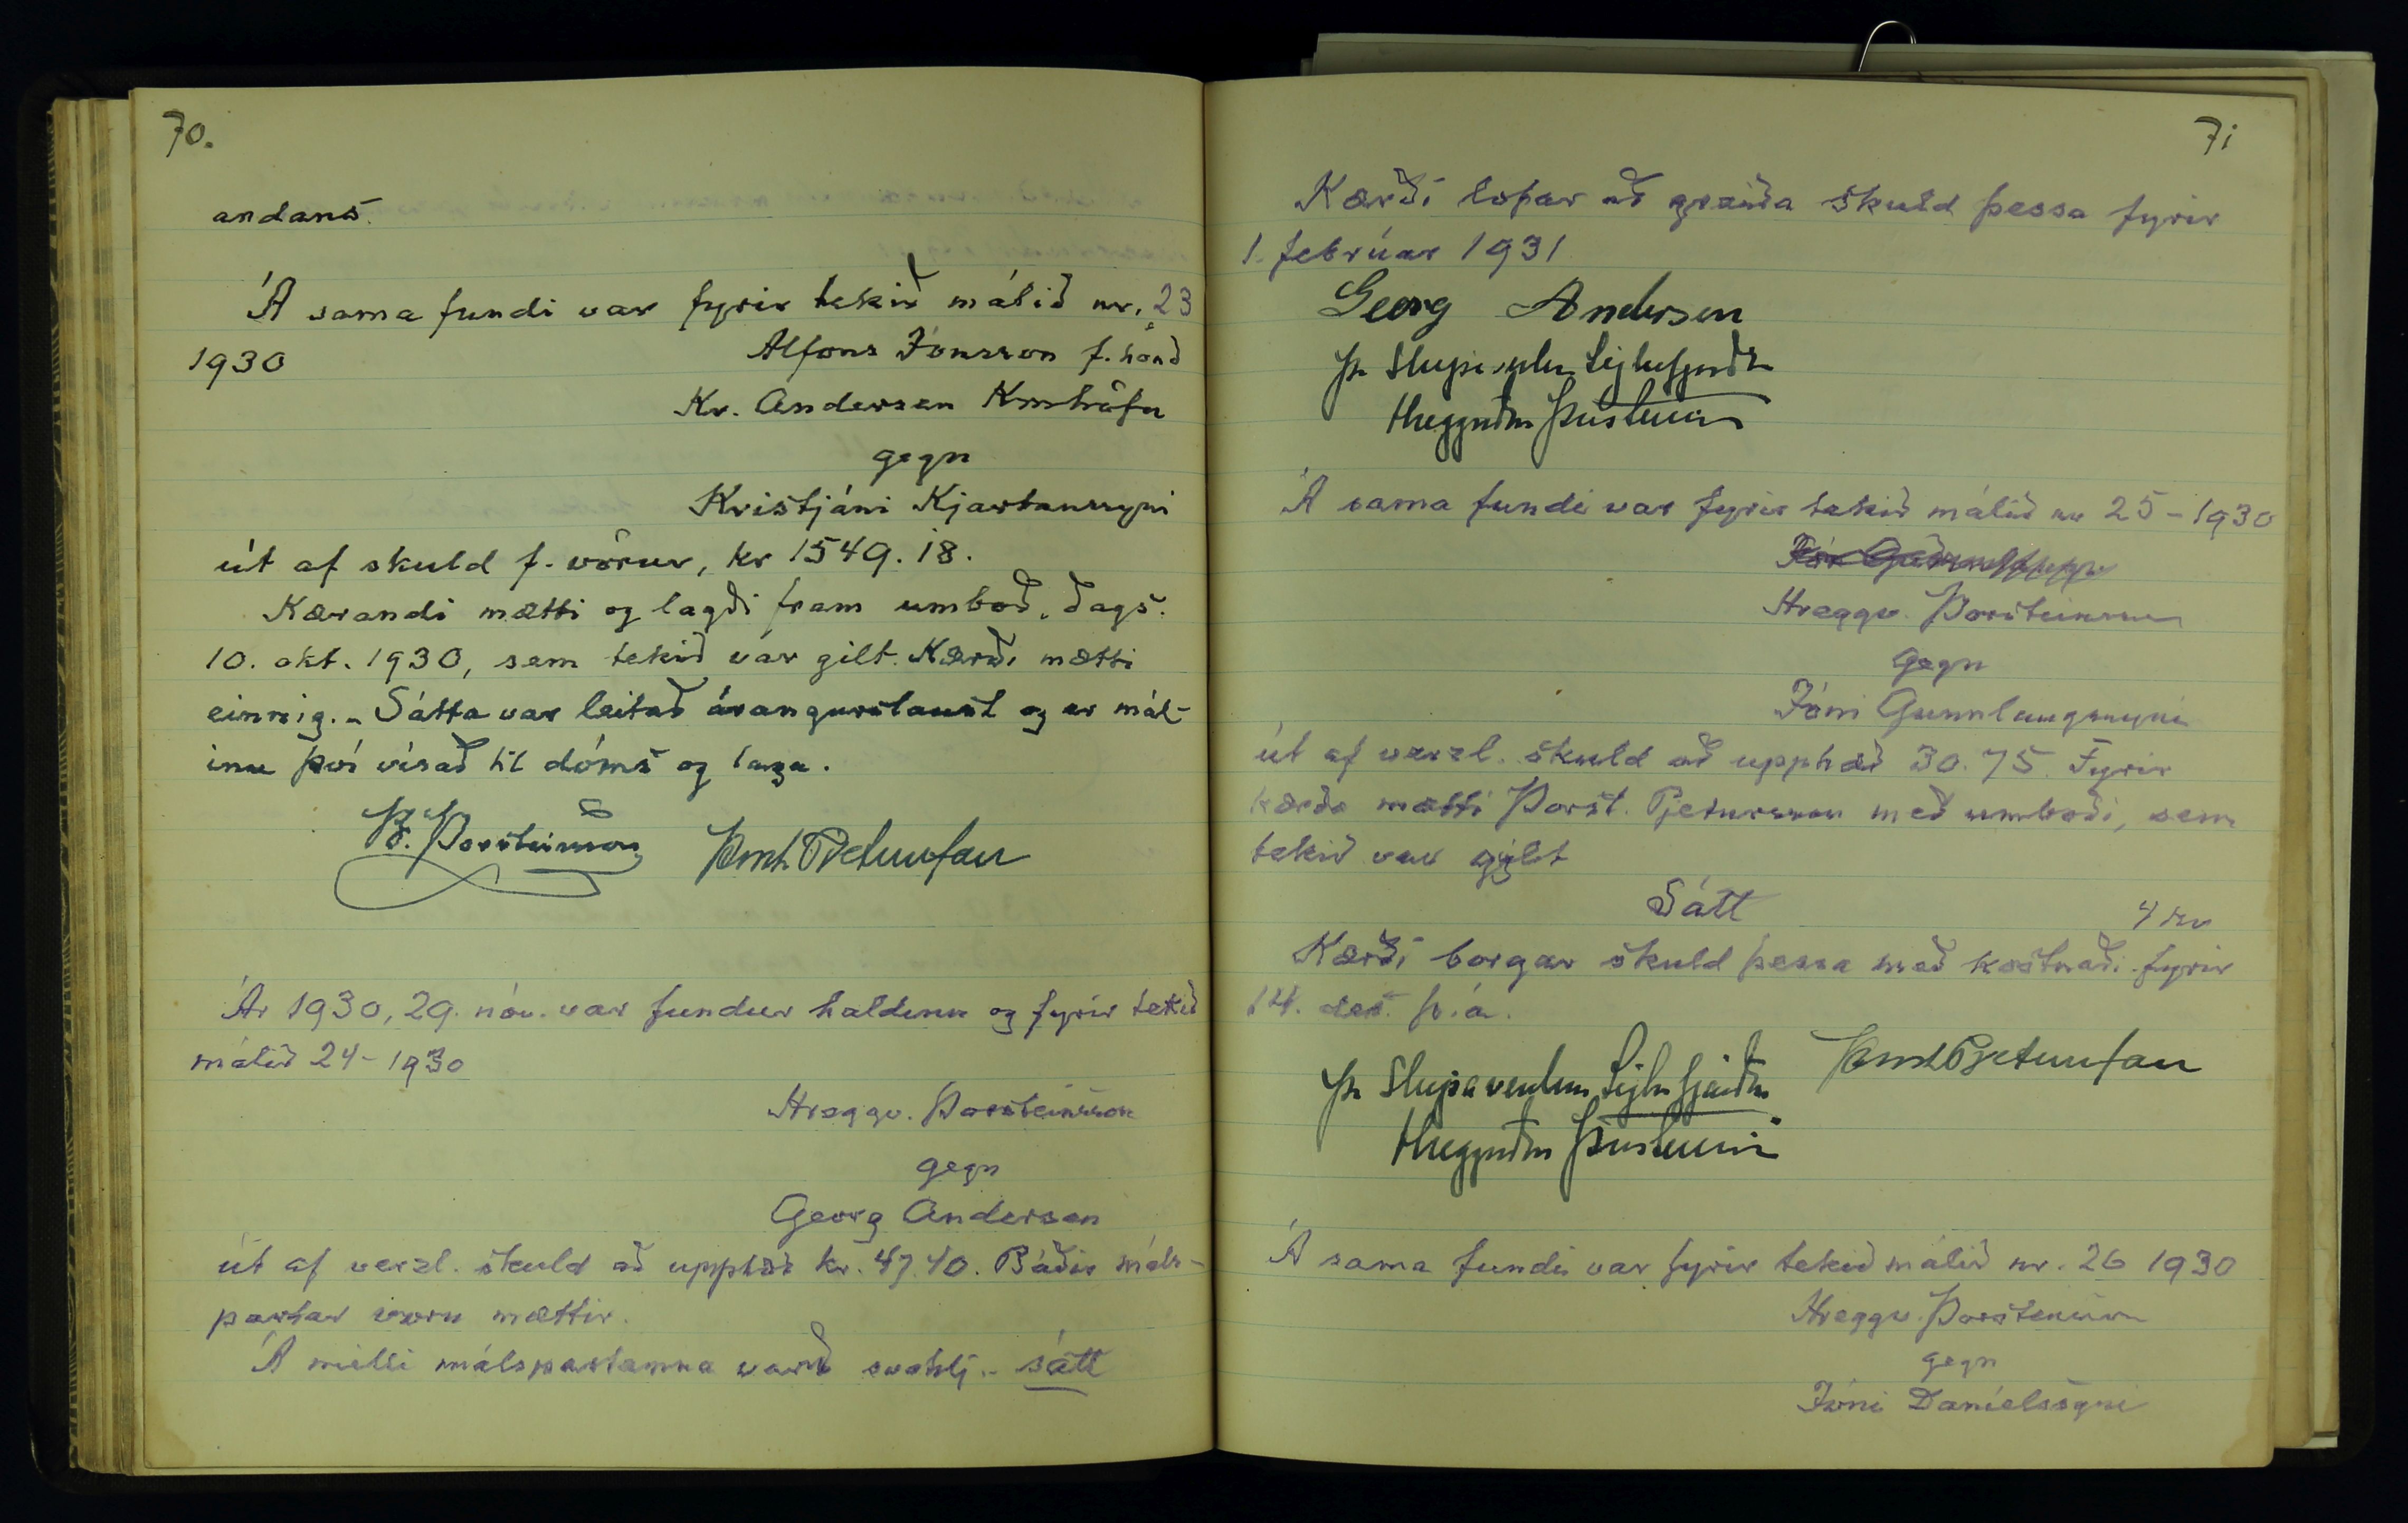 70.
andans.
Á sama fundi var fyrir tekið málið nr. 23
1930 Alfons Jónsson f. hönd
Kr. Andersen Kmhöfn
gegn
Kristjáni Kjartanssyni
út af skuld f. vörur, kr 1549.18.
Kærandi mætti og lagði fram umboð, dags.
10. okt. 1930, sem tekið var gilt. Kærði mætti
einnig. - Sátta var leitað árangurslaust og er mál-
inu því vísað til dóms og laga.
Þ. Þorsteinsson Þorst. Pjetursson
Ár 1930, 29. nóv. var fundur haldinn og fyrir tekið
málið 24 - 1930
Hreggv. Þorsteinsson
gegn
Georg Andersen
út af verzl. skuld að upphæð kr. 47.40. Báðir máls-
partar voru mættir.
Á milli málspartanna varð svohlj. - sátt
71
Kærði lofar að greiða skuld þessa fyrir
1. febrúar 1931
Georg Andersen
Siglufjarðar
Hreggviður Þorsteinsson
Á sama fundi var fyrir tekið málið nr 25 - 1930
Hreggv. Þorsteinsson
gegn
Jóni Gunnlaugssyni
út af verzl. skuld að upphæð 30.75. Fyrir
kærða mætti Þorst. Pjetursson með umboði, sem
tekið var gilt
Sátt
4 kr
Kærði borgar skuld þessa með kostnaði fyrir
14. des. þ.á.
Siglufjarðar Þorst. Pjetursson
Hreggviður Þorsteinsson
Á sama fundi var fyrir tekið málið nr. 26 1930
Hreggv. Þorsteinsson
gegn
Jóni Daníelssyni